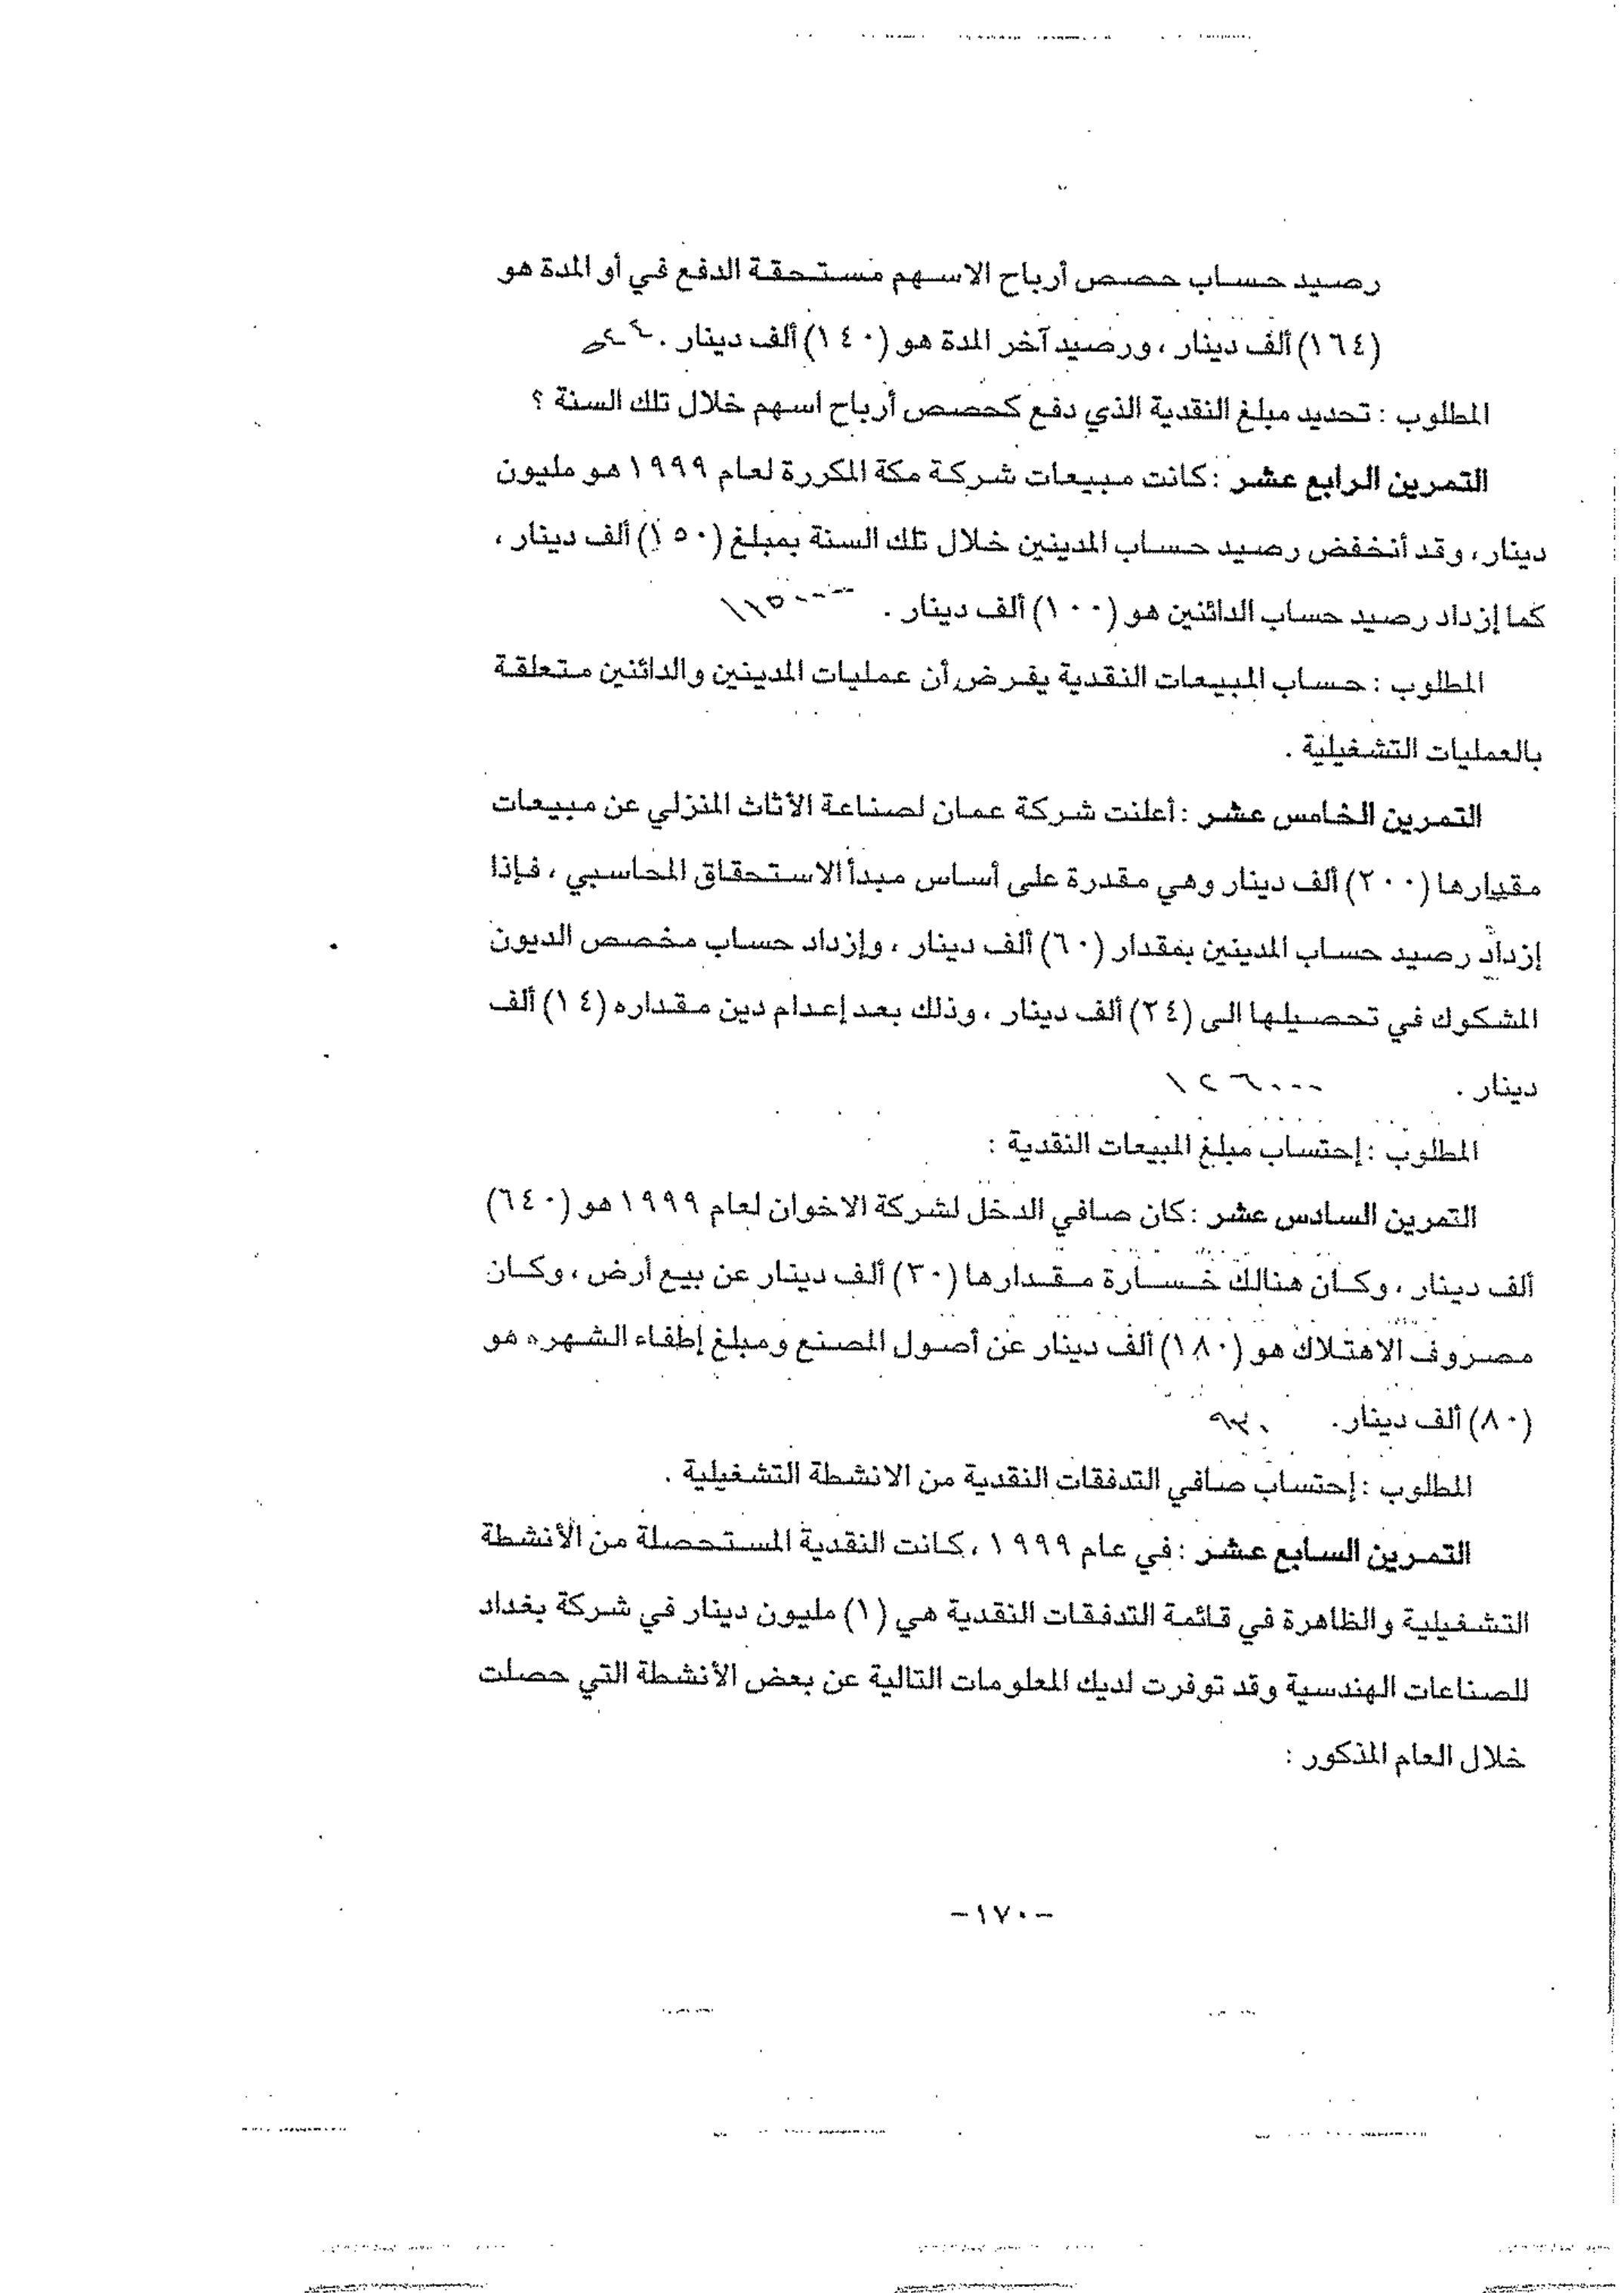 رصيد حساب حصص أرباح الاسهم مستحقة الدفع في أو المدة هو
(١٦٤) ألف دينار ، ورصيد آخر المدة هو (١٤٠) ألف دينار .
المطلوب : تحديد مبلغ النقدية الذي دفع كحصص أرباح اسهم خلال تلك السنة ؟
التمرين الرابع عشر : كانت مبيعات شركة مكة المكررة لعام ١٩٩٩ هو مليون
دينار ، وقد أنخفض رصيد حساب المدينين خلال تلك السنة بمبلغ (١٥٠) ألف دينار ،
كما إزداد رصيد حساب الدائنين هو (١٠٠) ألف دينار . ١١٥٠٠٠٠
المطلوب : حساب المبيعات النقدية يفرض أن عمليات المدينين والدائنين متعلقة
بالعمليات التشغيلية .
التمرين الخامس عشر : أعلنت شركة عمان لصناعة الأثاث المنزلي عن مبيعات
مقدارها (٢٠٠) ألف دينار وهي مقدرة على أساس مبدأ الاستحقاق المحاسبي ، فإذا
إزداد رصيد حساب المدينين بمقدار (٦٠) ألف دينار ، وإزداد حساب مخصص الديون
المشكوك في تحصيلها الى (٢٤) ألف دينار ، وذلك بعد إعدام دين مقداره (١٤) ألف
دينار . ١٢٦٠٠٠
المطلوب : إحتساب مبلغ المبيعات النقدية :
التمرين السادس عشر : كان صافي الدخل لشركة الاخوان لعام ١٩٩٩ هو (٦٤٠)
ألف دينار ، وكان هنالك خسارة مقدارها (٣٠) ألف دينار عن بيع أرض ، وكان
مصروف الاهتلاك هو (١٨٠) ألف دينار عن أصول المصنع ومبلغ إطفاء الشهره هو
(٨٠) ألف دينار. ٩٣٠
المطلوب : إحتساب صافي التدفقات النقدية من الانشطة التشغيلية .
التمرين السابع عشر : في عام ١٩٩٩ ، كانت النقدية المستحصلة من الأنشطة
التشغيلية والظاهرة في قائمة التدفقات النقدية هي (١) مليون دينار في شركة بغداد
للصناعات الهندسية وقد توفرت لديك المعلومات التالية عن بعض الأنشطة التي حصلت
خلال العام المذكور :
-١٧٠-